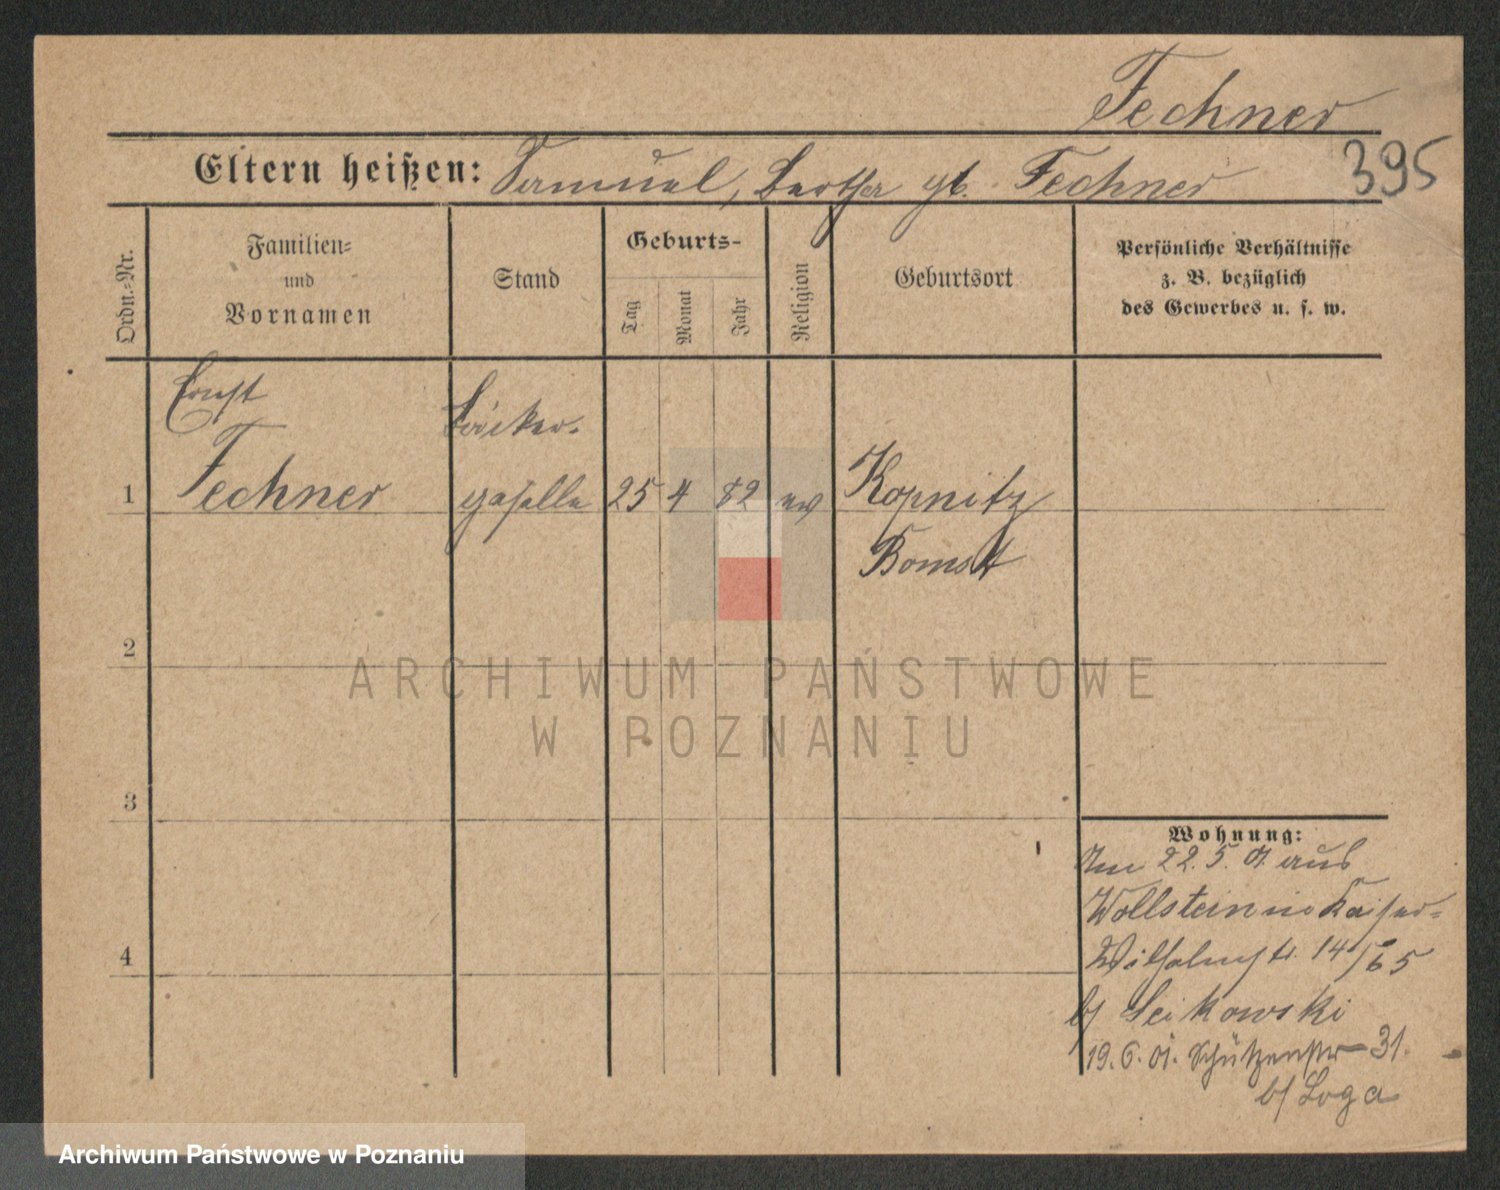 Fechner
395
Eltern heißen: Samuel, Bertha gb. Fechner
Ordn.-Nr.
Familien-
und
Vornamen
Stand
Geburts-
Tag
Monat
Jahr
Religion
Geburtsort
Persönliche Verhältnisse
z. B. bezüglich
des Gewerbes u. s. w.
Ernst Bäcker-
1 Fechner geselle 25 4 82 ev Kopnitz
Bomst
2
3
4
Wohnung:
Am 22.5.01. aus
Wollstein in Kaiser-
Wilhelmstr. 14/65
b/ Leikowski
19.6.01. Schützenstr 31.
b/ Loga
ARCHIWUM PAŃSTWOWE
W POZNANIU
Archiwum Państwowe w Poznaniu